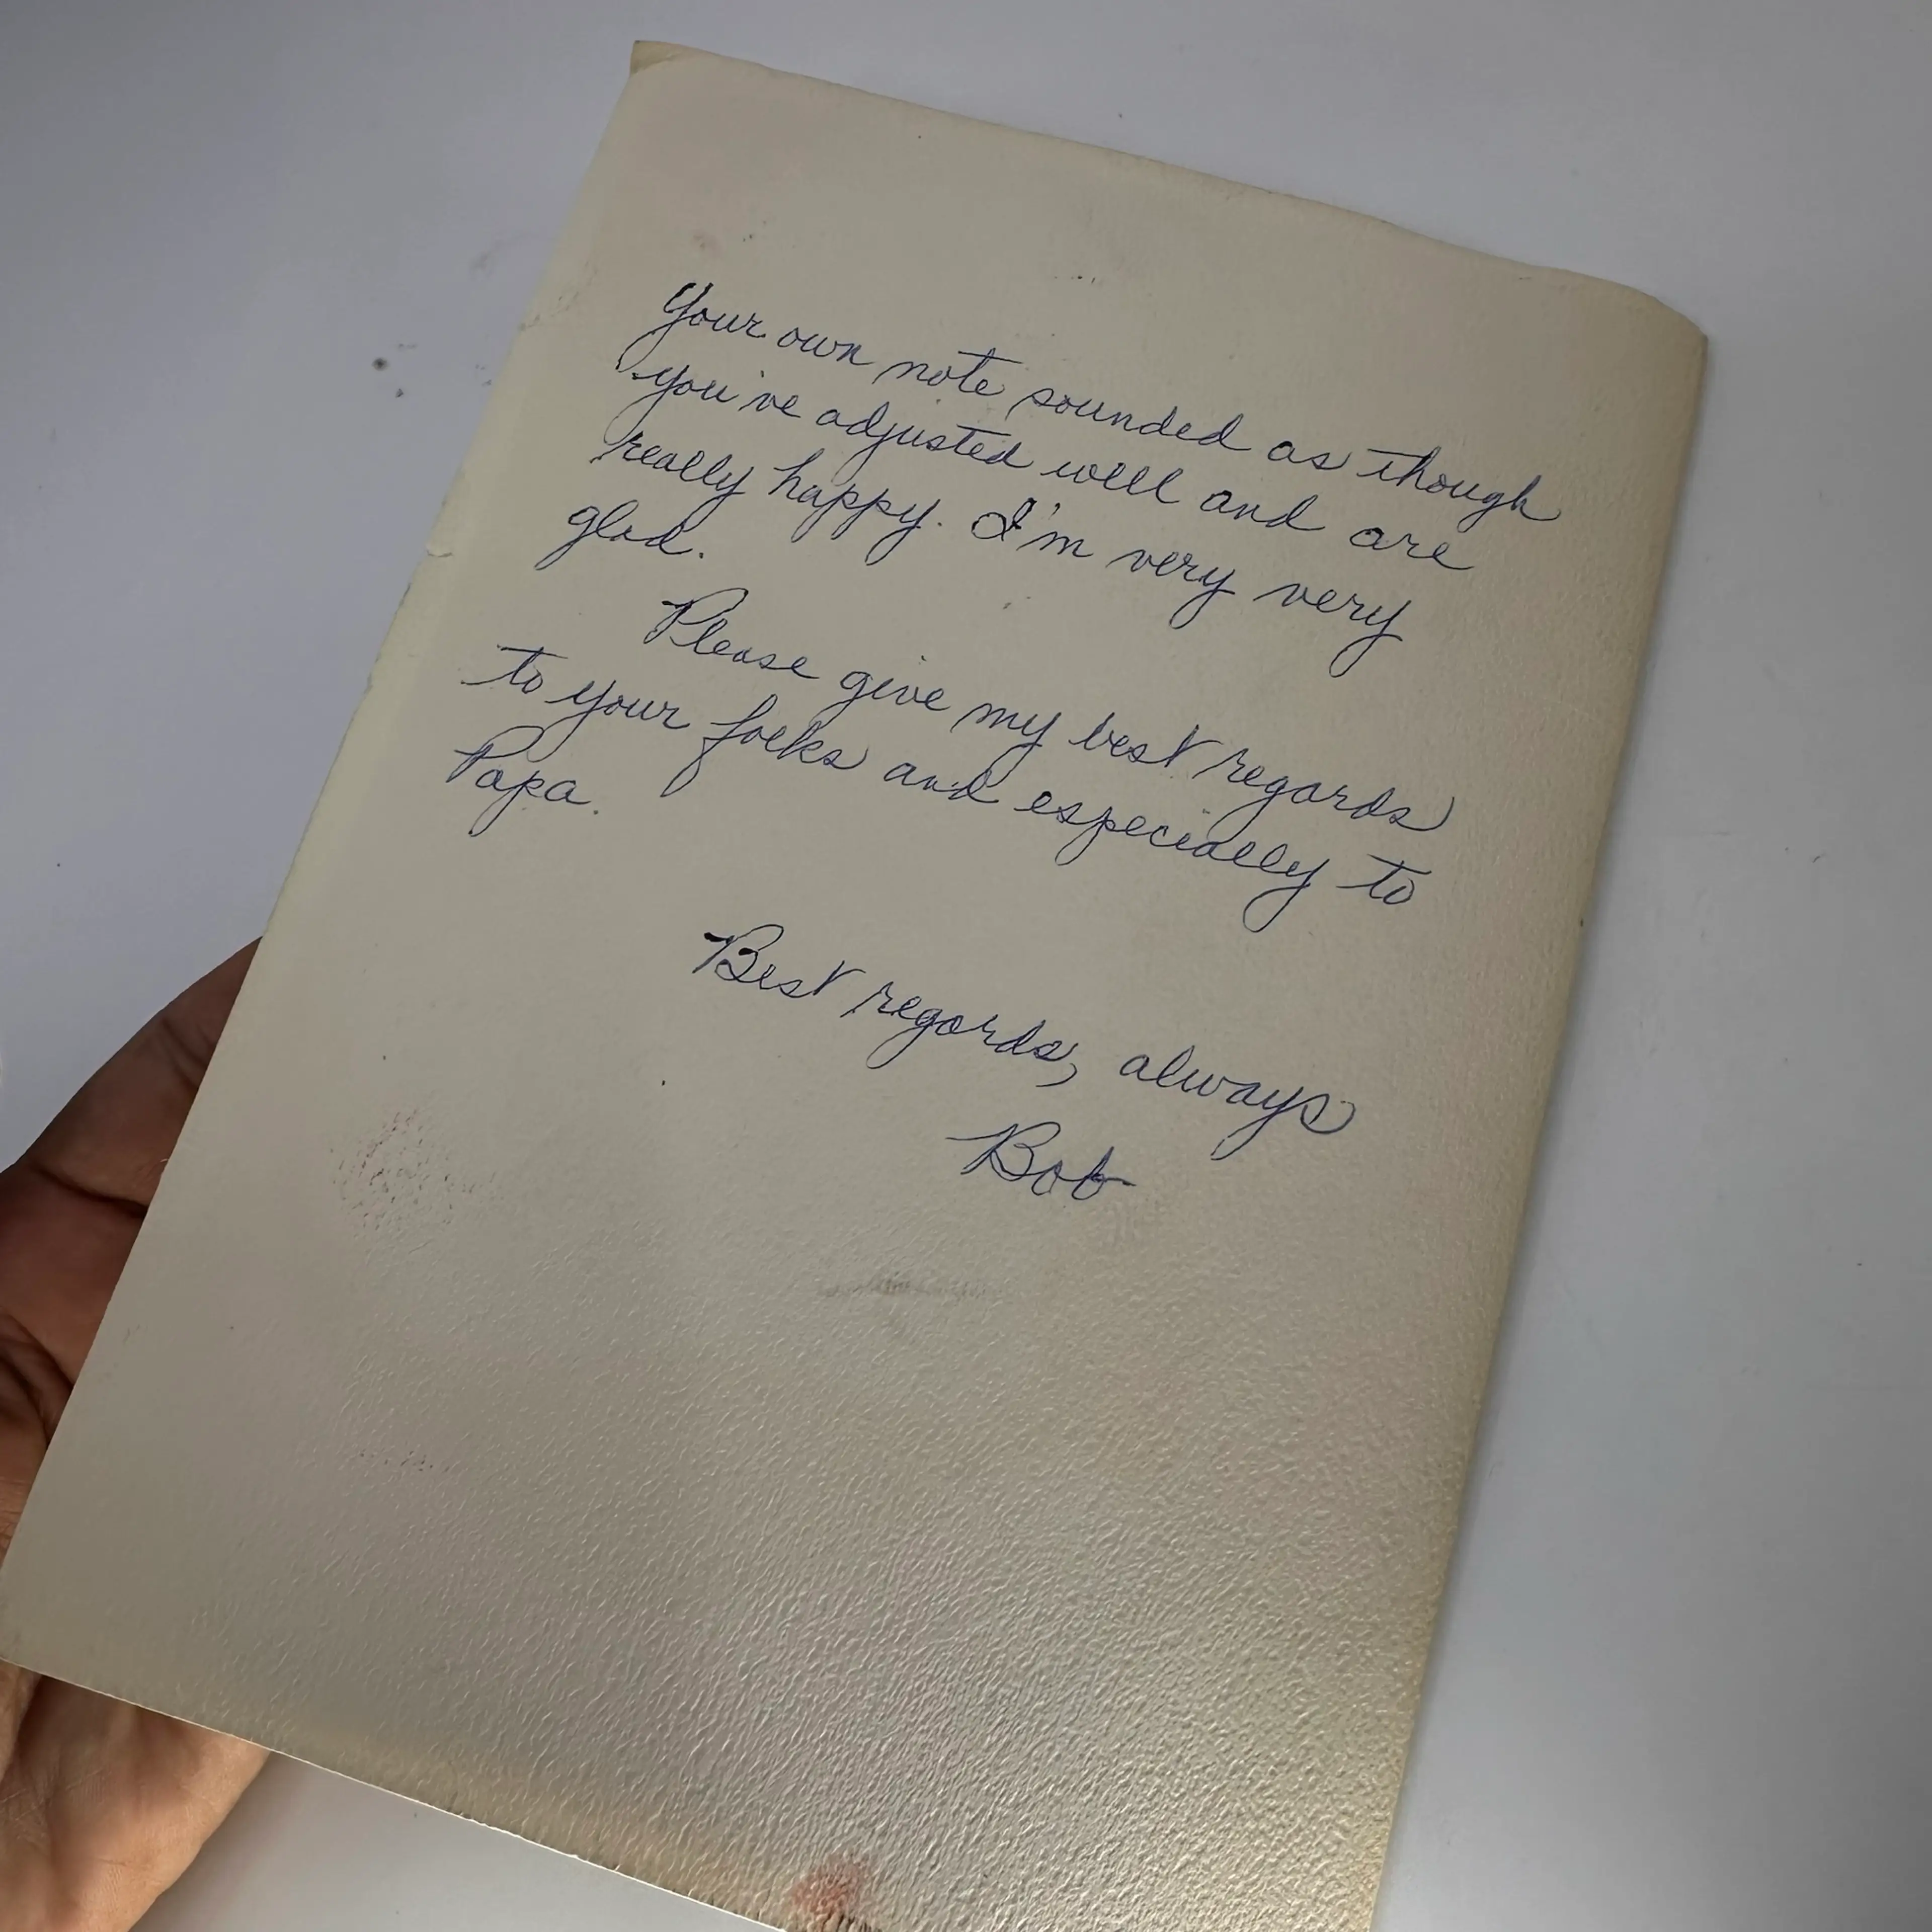 Your own note sounded as though
you've adjusted well and are
really happy. I'm very very
glad.
Please give my best regards
to your folks and especially to
Papa.
Best regards, always
Bob